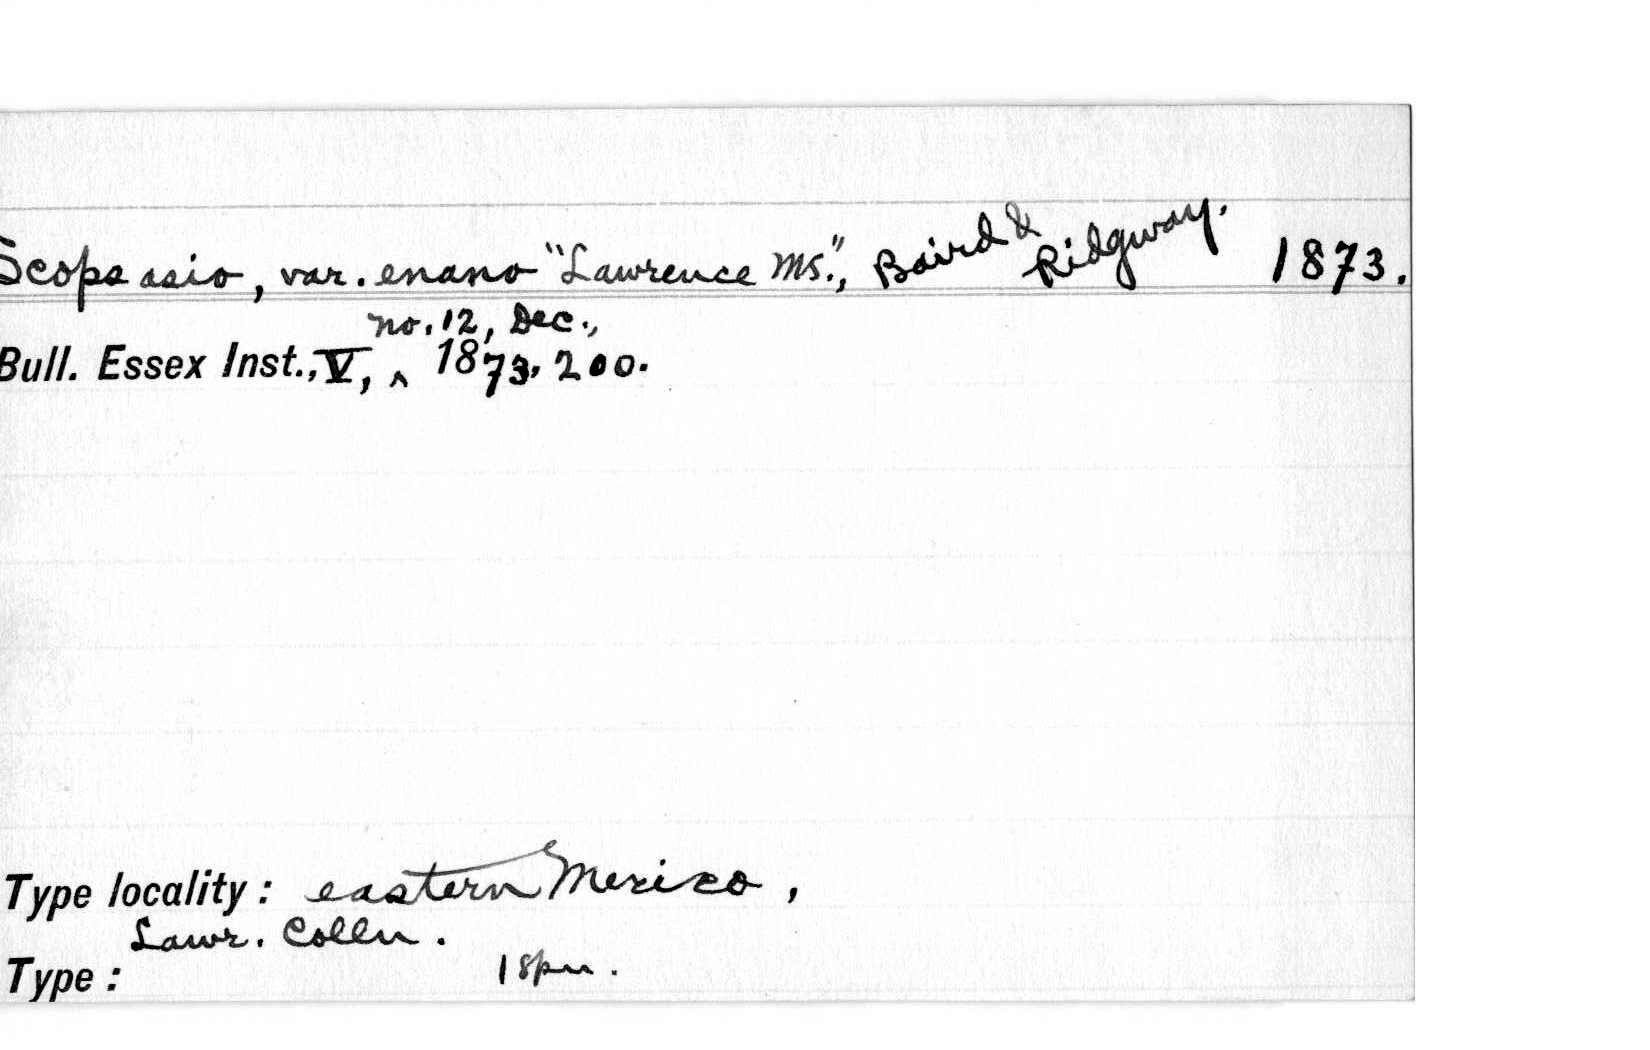 Scops asio, var. enano "Lawrence MS.", Baird & Ridgway. 1873.
no. 12, Dec.,
Bull. Essex Inst., V, ^ 1873, 200.
Type locality: eastern Mexico,
Lawr. Colln.
Type: 1 spn.